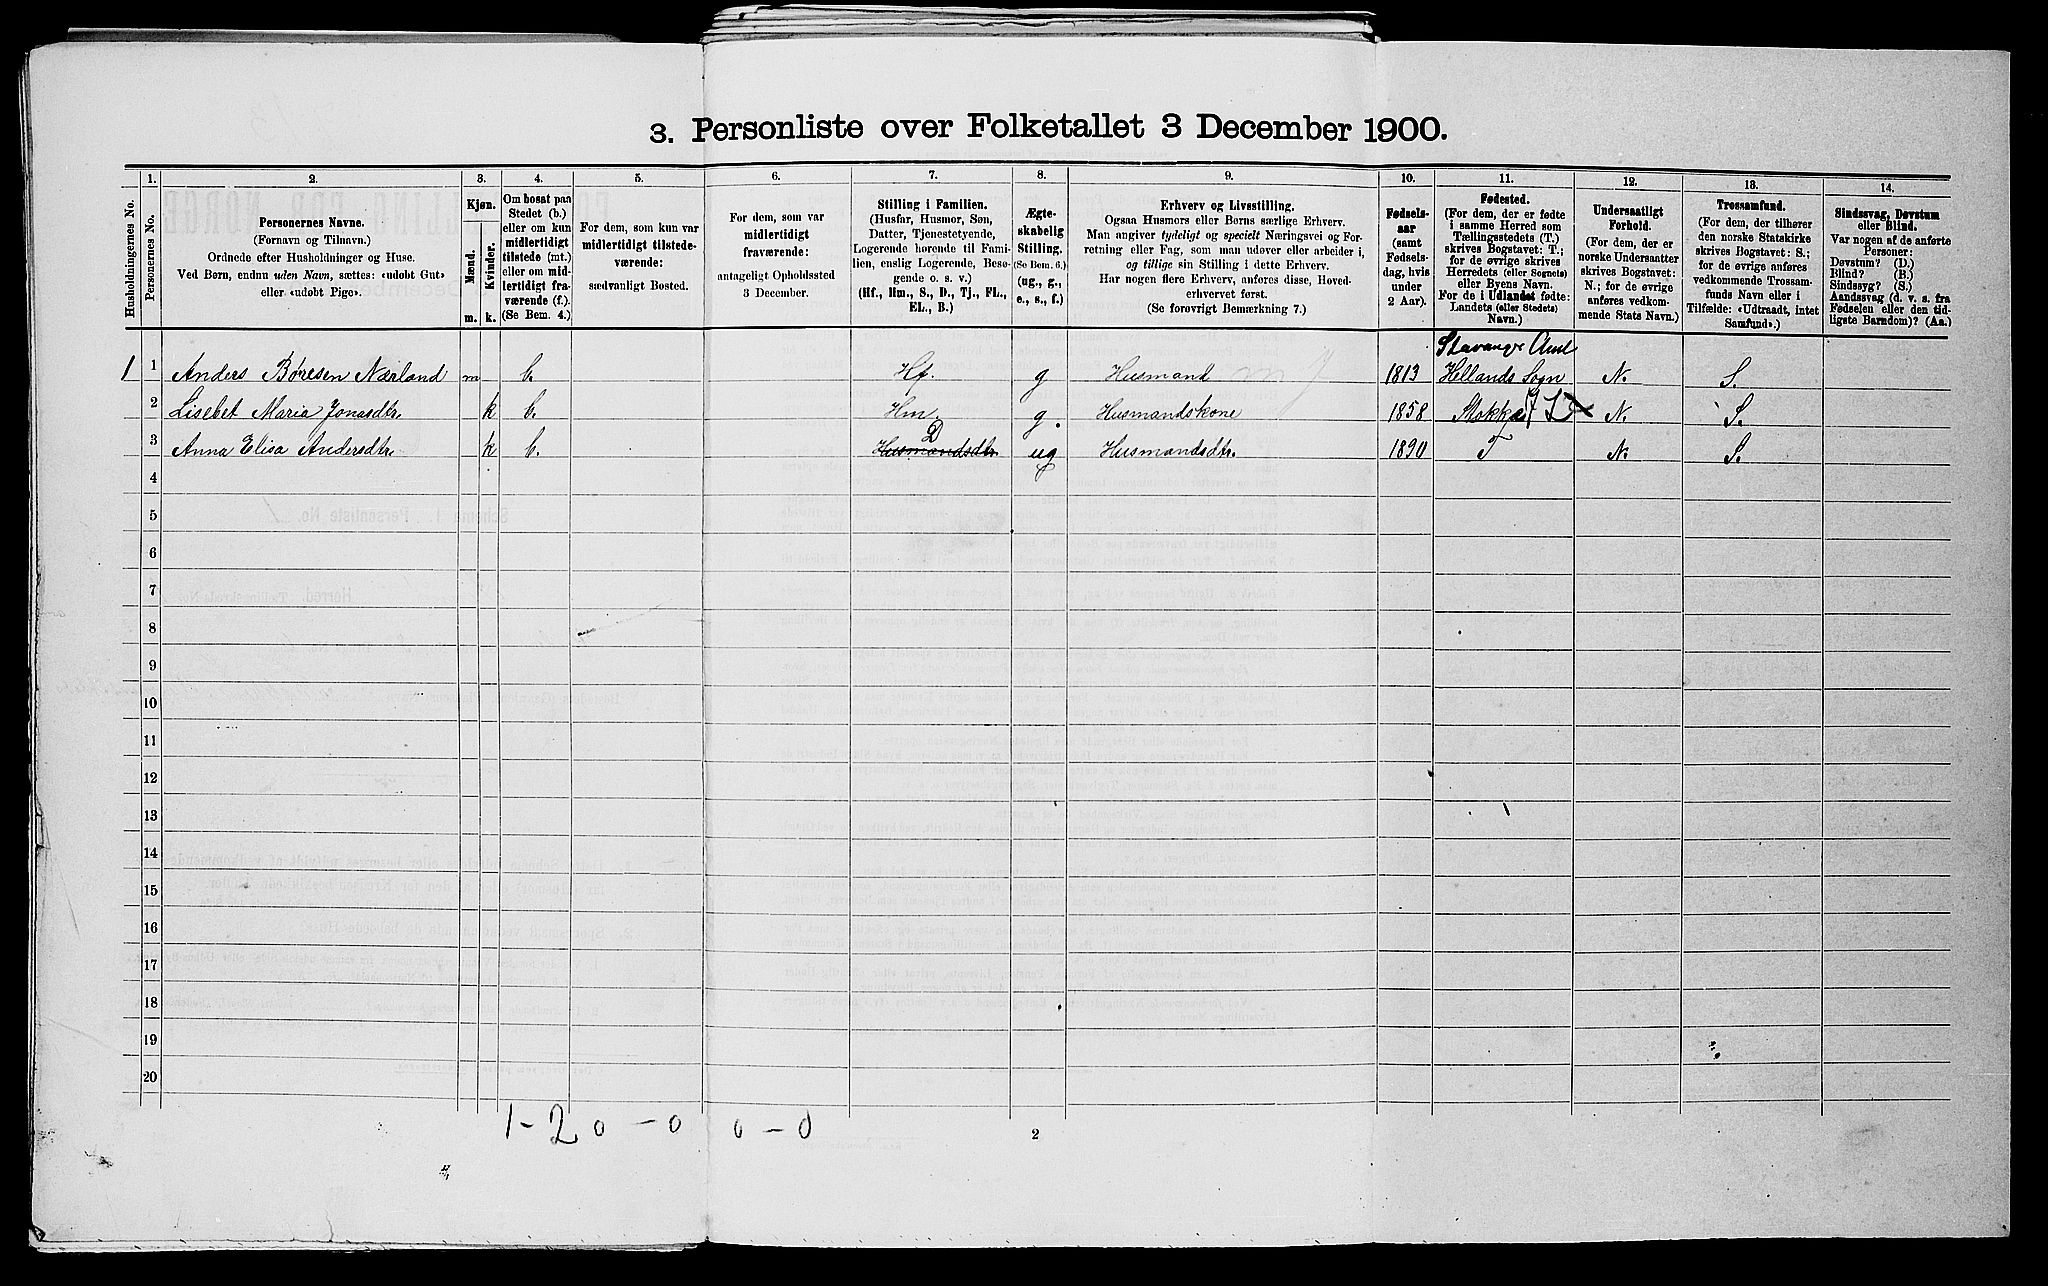 3. Personliste over Folketallet 3 December 1900.
Husholdningernes No.
1.
Personernes No.
2.
Personernes Navne.
(Fornavn og Tilnavn.)
Ordnede efter Husholdninger og Huse.
Ved Børn, endnu uden Navn, sættes: «udøbt Gut»
eller «udøbt Pige».
3.
Kjøn.
Mænd.
Kvinder.
m.
k.
4.
Om bosat paa
Stedet (b.)
eller om kun
midlertidigt
tilstede (mt.)
eller om mid-
lertidigt fra-
værende (f.).
(Se Bem. 4.)
5.
For dem, som kun var
midlertidigt tilstede-
værende:
sædvanligt Bosted.
6.
For dem, som var
midlertidigt
fraværende:
antageligt Opholdssted
3 December.
7.
Stilling i Familien.
(Husfar, Husmor, Søn,
Datter, Tjenestetyende,
Logerende hørende til Fami-
lien, enslig Logerende, Besø-
gende o. s. v.)
(Hf., Hm., S., D., Tj., FL.,
EL., B.)
8.
Ægte-
skabelig
Stilling.
(Se Bem. 6.)
(ug., g.,
e., s., f.)
9.
Erhverv og Livsstilling.
Ogsaa Husmors eller Børns særlige Erhverv.
Man angiver tydeligt og specielt Næringsvei og For-
retning eller Fag, som man udøver eller arbeider i,
og tillige sin Stilling i dette Erhverv.
Har nogen flere Erhverv, anføres disse, Hoved-
erhvervet først.
(Se forøvrigt Bemærkning 7.)
10.
Fødsels-
aar
(samt
Fødsels-
dag, hvis
under
2 Aar).
11.
Fødested.
(For dem, der er fødte
i samme Herred som
Tællingsstedets (T.)
skrives Bogstavet: T.;
for de øvrige skrives
Herredets (eller Sognets)
eller Byens Navn.
For de i Udlandet fødte:
Landets (eller Stedets)
Navn.)
12.
Undersaatligt
Forhold.
(For dem, der er
norske Undersaatter
skrives Bogstavet:
N.; for de øvrige
anføres vedkom-
mende Stats Navn.)
13.
Trossamfund.
(For dem, der tilhører
den norske Statskirke
skrives Bogstavet: S.;
for de øvrige anføres
vedkommende Trossam-
funds Navn eller i
Tilfælde: «Udtraadt, intet
Samfund».)
14.
Sindssvag, Døvstum
eller Blind.
Var nogen af de anførte
Personer:
Døvstum? (D.)
Blind? (B.)
Sindssyg? (S.)
Aandssvag (d. v. s. fra
Fødselen eller den tid-
ligste Barndom)? (Aa.)
Stavanger Amt
1 1 Anders Børesen Nærland m b. Hf. g Husmand 1813 Hellands Sogn N. S.
2 Lisebet Maria Jonasdtr. k b. Hm. g. Husmandskone 1858 Stokka N. S.
D
3 Anna Elisa Andersdtr. k b. Husmandsdtr. ug Husmandsdtr. 1890 T N. S.
4
5
6
7
8
9
10
11
12
13
14
15
16
17
18
19
20
1-2 0 - 0 0 - 0
2